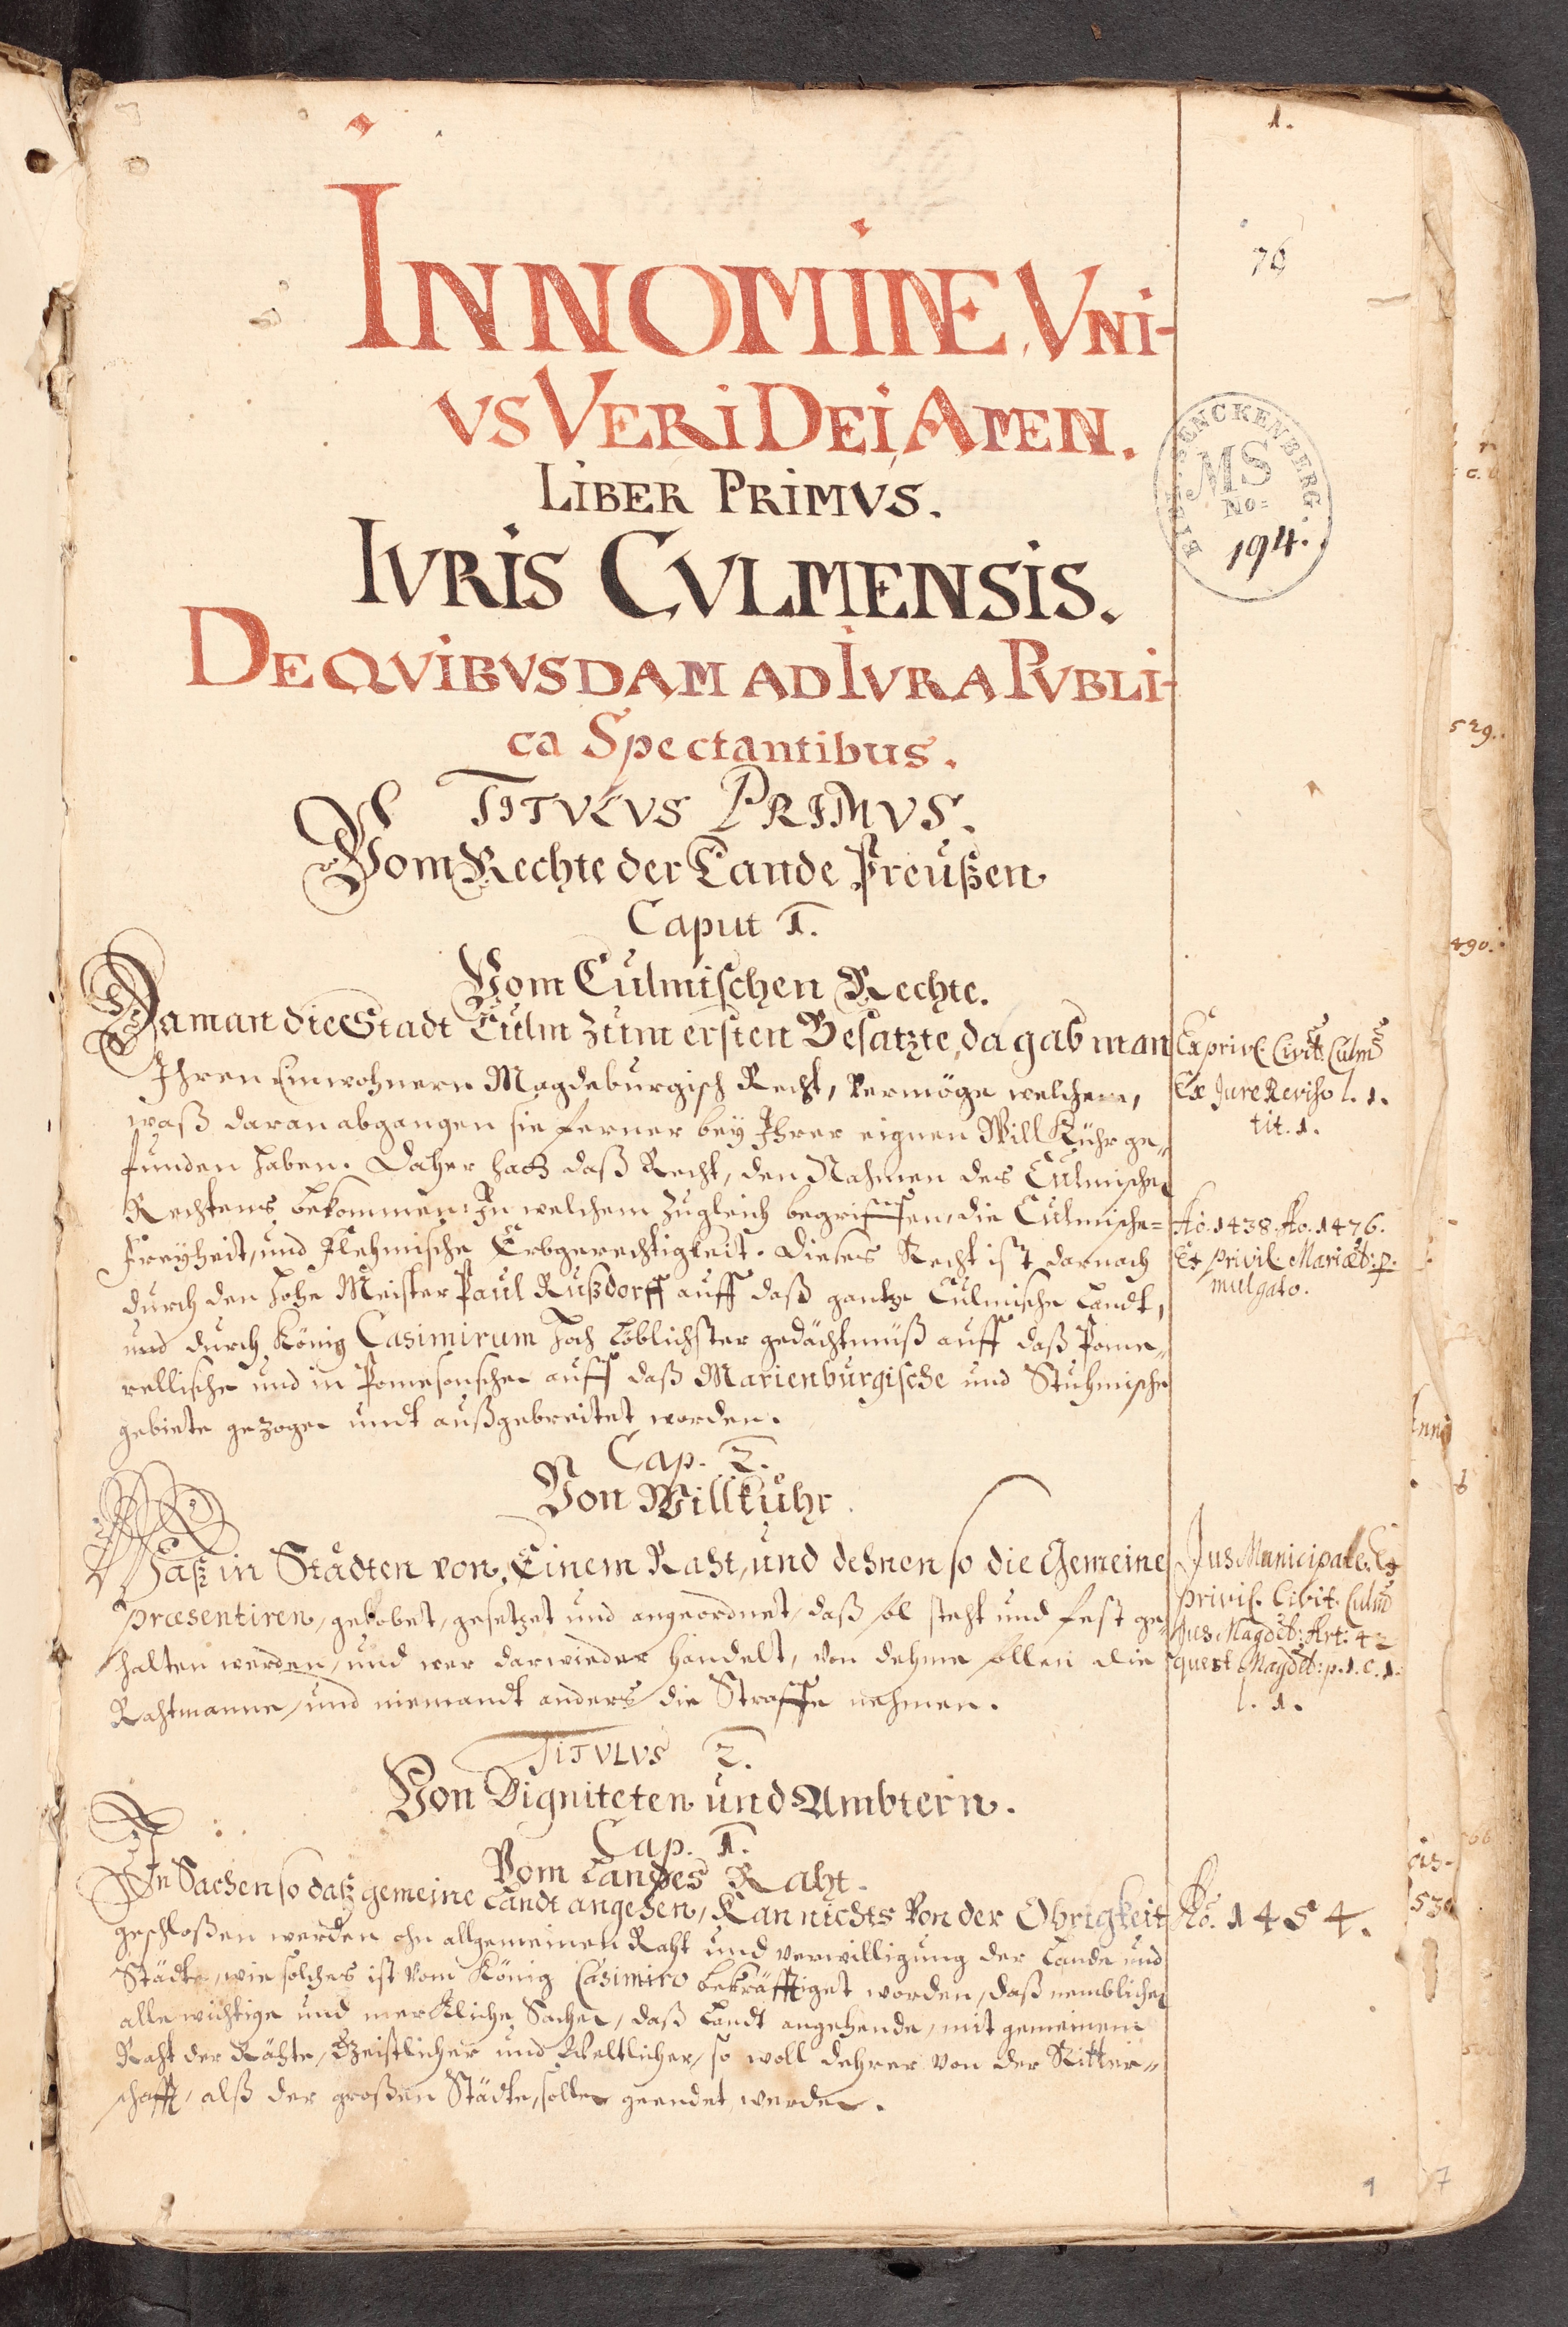 1.
76
IN NOMINE UNI-
VS VERI DEI, AMEN.
LIBER PRIMVS.
BIBL. SENCKENBERG.
MS
No=
194.
IVRIS CVLMENSIS.
DE QVIBVSDAM AD IVRA PVBLI-
ca Spectantibus.
TITVLVS PRIMVS.
Vom Rechte der Lande Preußen
Caput 1.
Vom Culmischen Rechte.
Da man die Stadt Culm zum ersten Besatzte, da gab man
Ihren Einwohnern Magdeburgisch Recht, vermöge welchem,
waß daran abgangen sie ferner bey Ihrer eignen Will Kühr ge-
funden haben. Daher hatt daß Recht, den Nahmen des Culmischen
Rechtens bekommen: In welchem zugleich begriffen, die Culmische=
Freyheit, und Flehmische Erbgerechtigkeit. Dieses Recht ist darnach
durch den Hohe Meister Paul Rußdorff auff daß gantze Culmische Landt,
und durch König Casimirum Hoch Löblichster gedächtnüß auff daß Pome-
rellische und in Pomesonschen auff daß Marienburgische und Stuhmische
gebiete gezogen undt außgebreitet worden.
Ex privil. Civit. Culm
Ex Jure Reviso l. 1.
tit. 1.
Ao. 1438. Ao. 1476.
Et privil. Mariæb: p.
mulgato.
Cap. 2.
Von Willkühr.
Waß in Städten von Einem Raht, und dehnen so die Gemeine
præsentiren, gelobet, gesetzet und angeordnet, daß sol steht und fest ge-
halten werden, und wer darwieder handelt, von dehme sollen die
Rahtmanne, und niemandt anders die Straffe nehmen.
Jus Municipale. Ex
privil. Civit. Culm
Jus Magdeb: Art: 42
quest. Magdeb: p. 1. c. 1.
l. 1.
TITVLVS 2.
Von Digniteten und Ambtern.
Cap. 1.
Vom Landes Raht.
In Sachen so daß gemeine Landt angehen, Kan nichts von der Obrigkeit
geschloßen werden ohn allgemeinen Raht und verwilligung der Lande und
Städte, wie solches ist vom König Casimiro bekräfftiget worden, daß nemblichen
alle wichtige und merckliche Sachen, daß Landt angehende, mit gemeinem
Raht der Rähte, Geistlicher und Weltlicher, so woll dehrer von der Ritter-
schafft, alß der großen Städte, sollen geendet werden.
Ao. 1454.
529.
490.
530
1
7